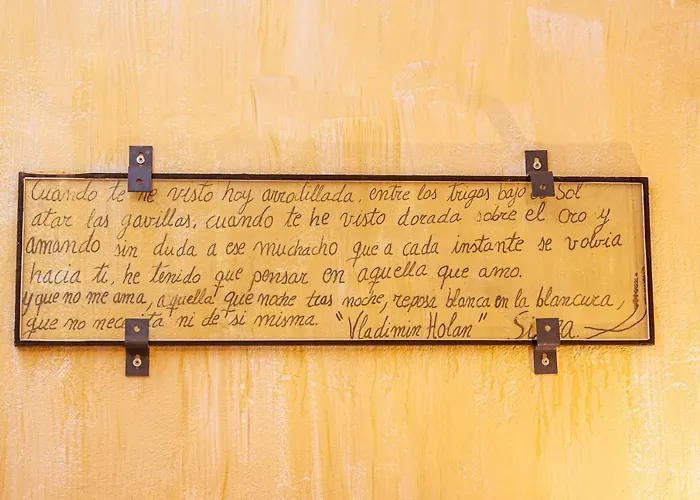 Cuando te he visto hoy arrodillada, entre los trigos bajo el Sol
atar las gavillas, cuando te he visto dorada sobre el oro y
amando sin duda a ese muchacho que a cada instante se volvia
hacia ti, he tenido que pensar en aquella que amo.
y que no me ama, aquella que noche tras noche, reposa blanca en la blancura,
que no necesita ni de si misma. "Vladimin Holan"